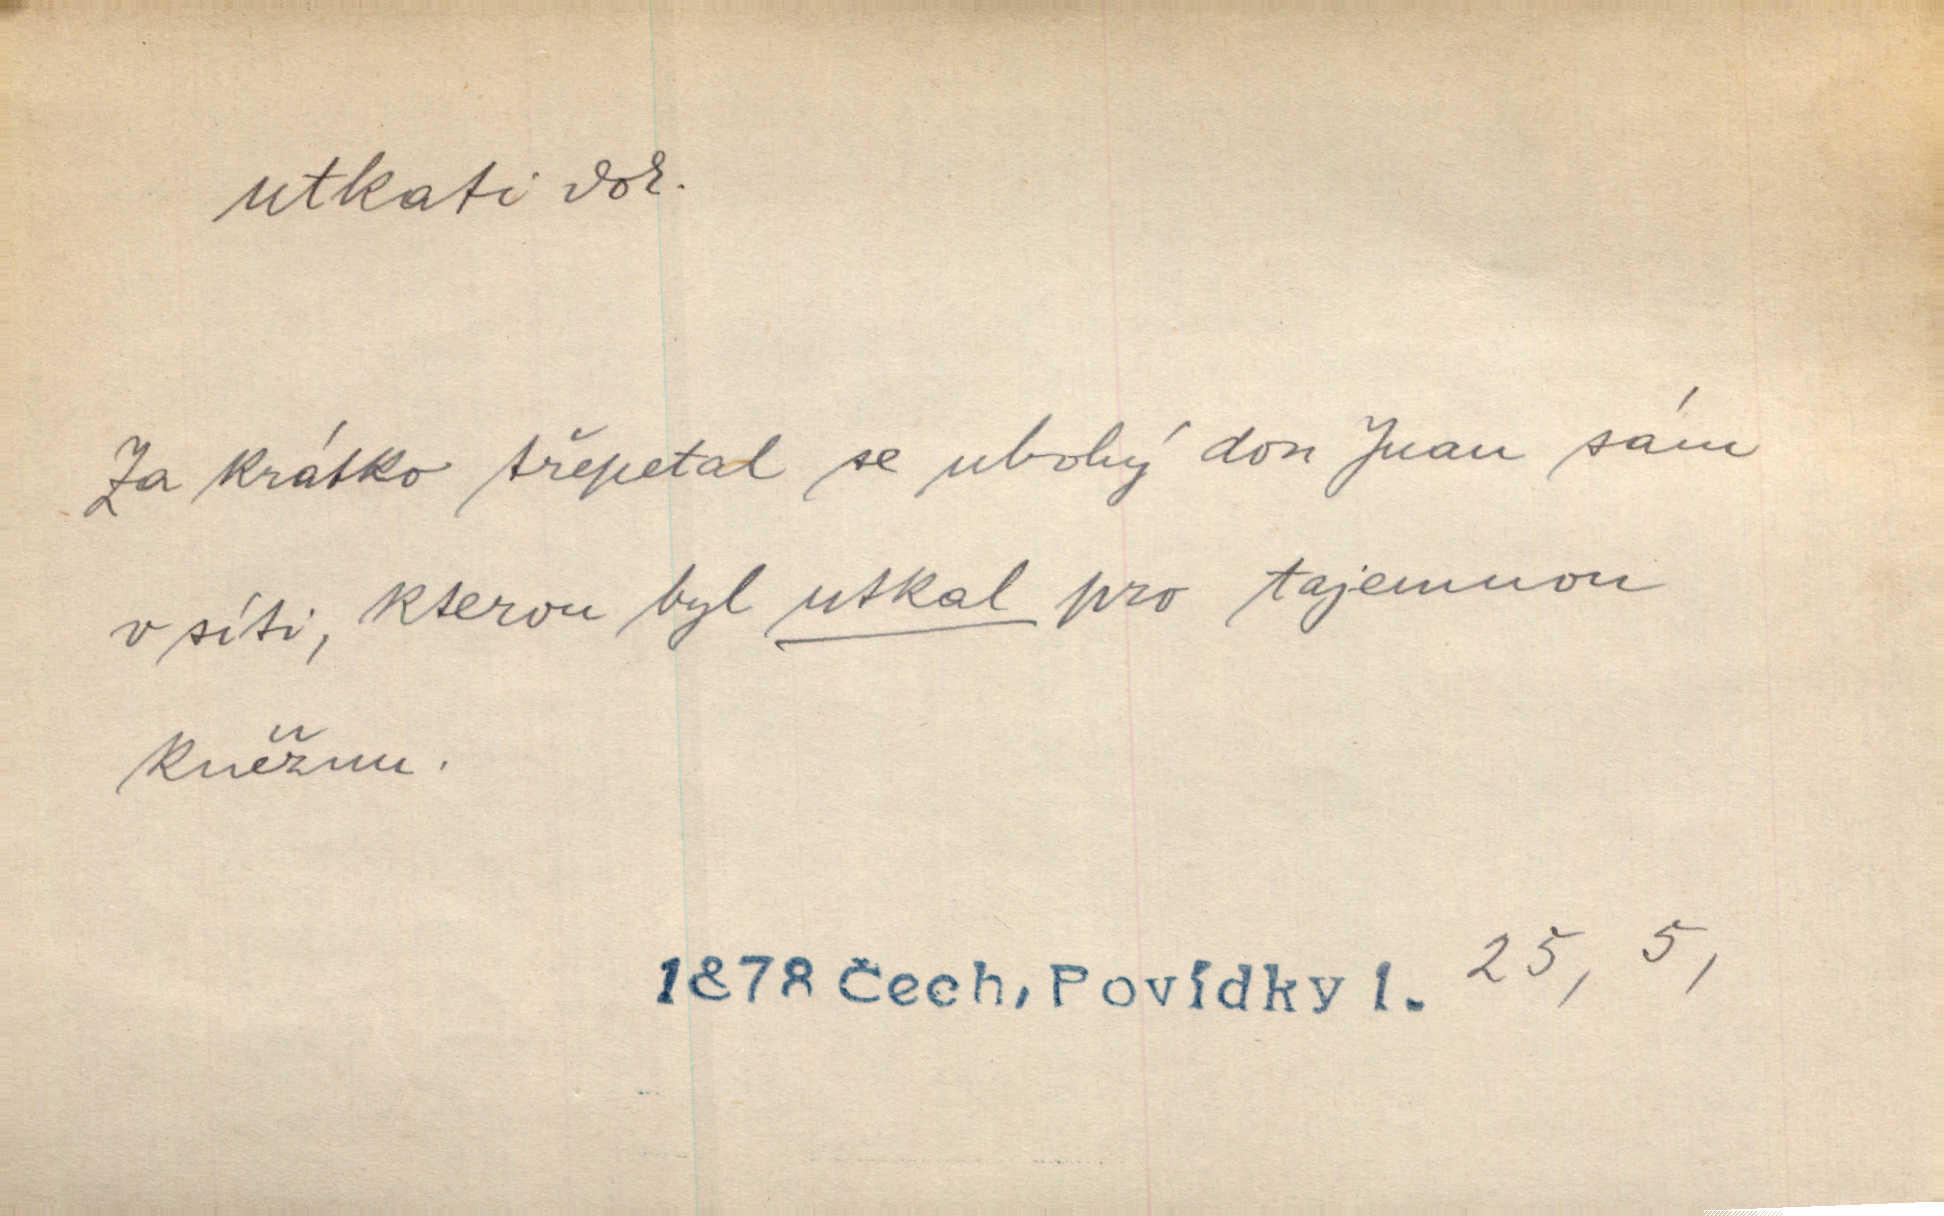 utkati dok.
Za krátko třepetal se ubohý don Juan sám
v síti, kterou byl utkal pro tajemnou
kněžnu.
1878 Čech, Povídky 1. 25, 5,